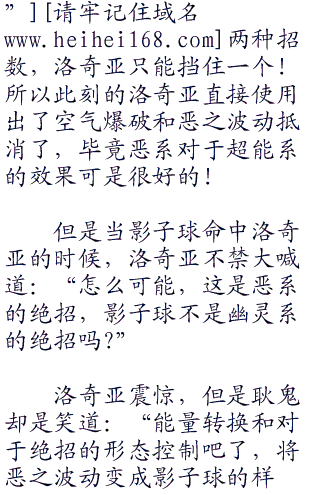 ”][请牢记住域名
www.heihei168.com]两种招
数，洛奇亚只能挡住一个！
所以此刻的洛奇亚直接使用
出了空气爆破和恶之波动抵
消了，毕竟恶系对于超能系
的效果可是很好的！
但是当影子球命中洛奇
亚的时候，洛奇亚不禁大喊
道：“怎么可能，这是恶系
的绝招，影子球不是幽灵系
的绝招吗?”
洛奇亚震惊，但是耿鬼
却是笑道：“能量转换和对
于绝招的形态控制吧了，将
恶之波动变成影子球的样